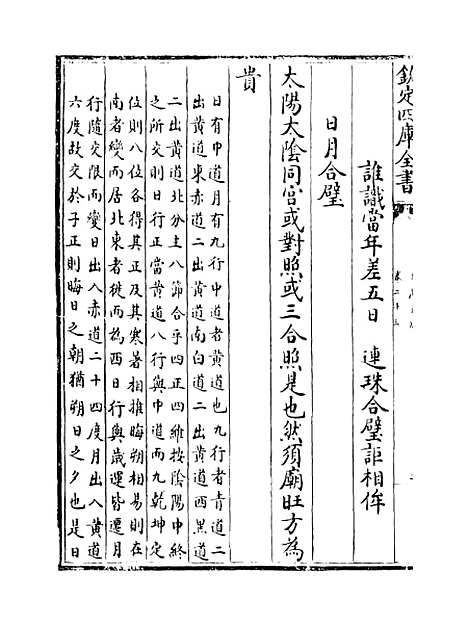 欽定四庫全書
誰識當年差五日　連珠合璧詎相侔
日月合璧
太陽太陰同宫或對照或三合照是也然須廟旺方為
貴
日有中道月有九行中道者黄道也九行者青道二
出黄道東赤道二出黄道南白道二出黄道西黑道
二出黄道北分主八節合乎四正四維按陰陽中終
之所交則日行正當黄道八行與中道而九乾坤定
位則八位各得其正及其寒暑相推晦朔相易則在
南者變而居北東者徙而為西日行與歲運皆遷月
行隨交限而變日出入赤道二十四度月出入黄道
六度故交於子正則晦日之朝猶朔日之夕也是日